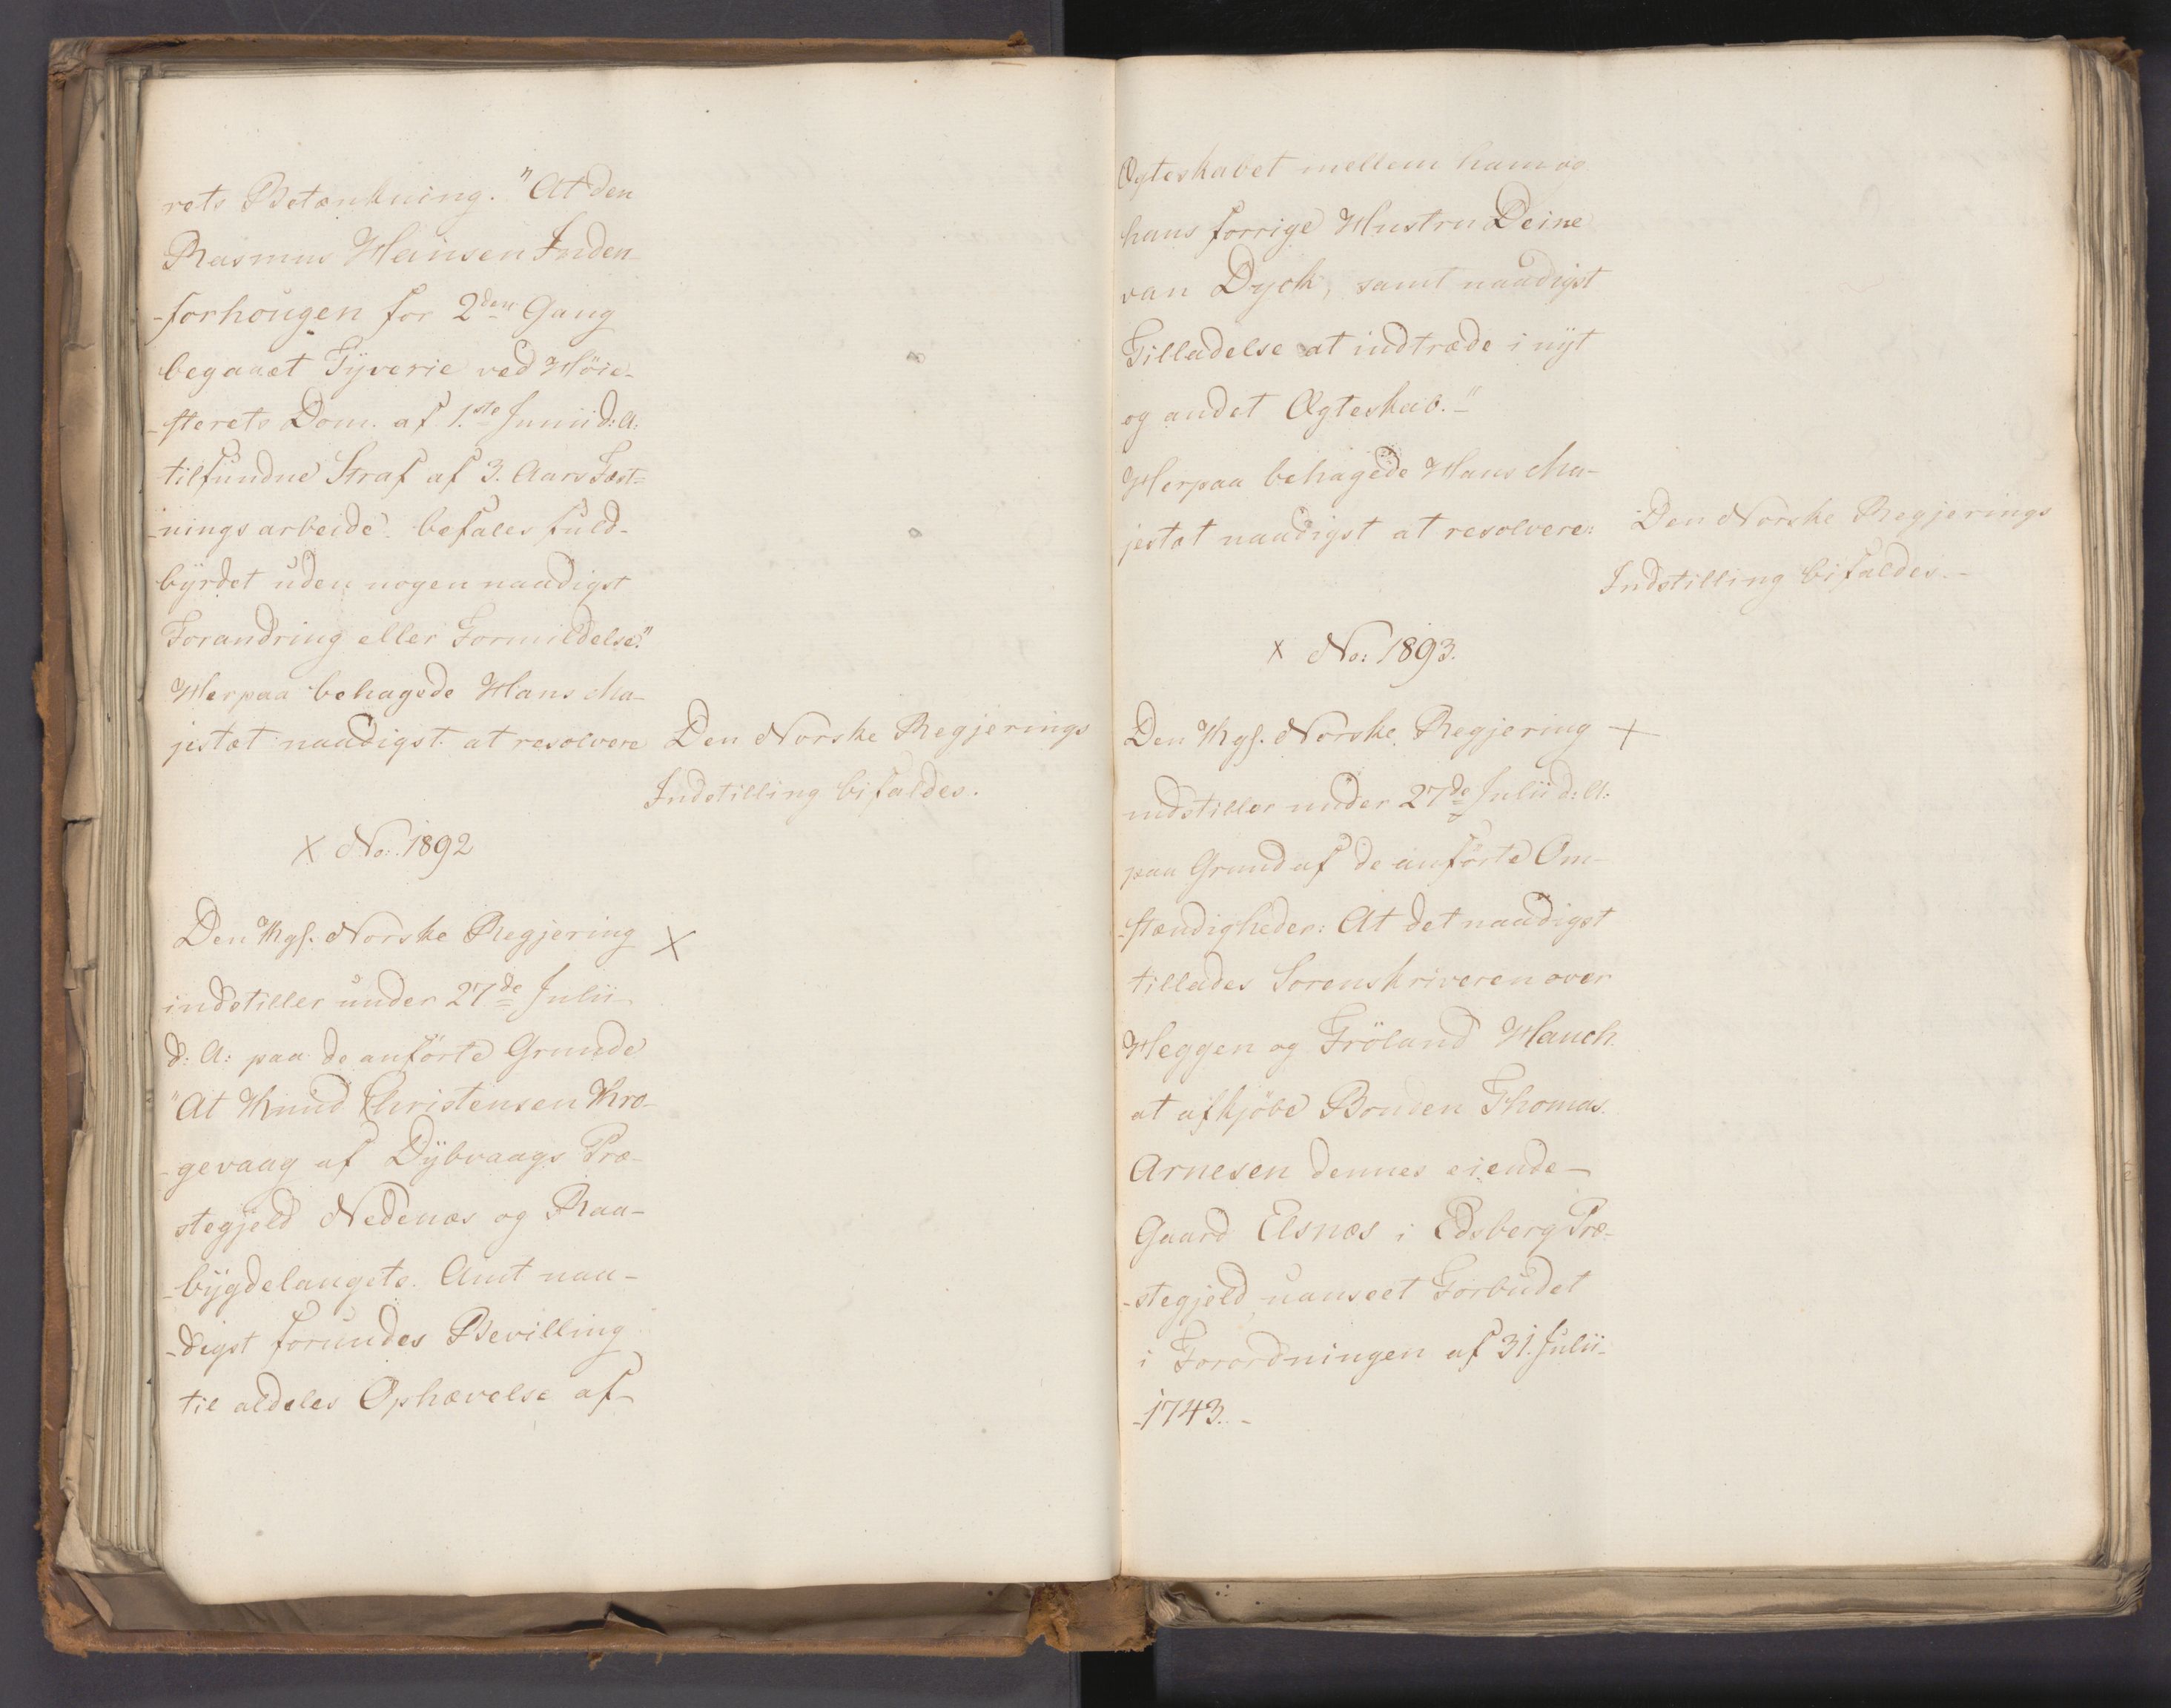 rets Betænkning. "At den
Rasmus Hansen Inden
-forhougen for 2den Gang
begaaet Tÿverie ved Höie-
-sterets Dom. af 1.ste Junii d: A:
tilfundne Straf af 3. Aars Fæst=
-nings arbeide befales fuld-
bÿrdet uden nogen naadigst
Forandring eller Formildelse."
Herpaa behagede Hans Ma-
jestæt naadigst at resolvere
Den Norske Regjerings
Indstilling bifaldes.
X No: 1892
Den Kgl. Norske Regjering X
indstiller under 27de Julii
d: A: paa de anförte Grunde
"At Knud Christensen Kro-
-gevaag af Dÿbvaags Præ-
stegjeld Nedenæs og Raa-
-bÿgdelaugets Amt naa-
-digst forundes Bevilling
til aldeles Ophævelse af
Ægteskabet mellem ham og
hans forrige Hustru Deine
van Dyck, samt naadigst
Tilladelse at indtræde i nÿt
og andet Ægteskab."
Herpaa behagede Hans Ma-
jestæt naadigst at resolvere:
Den Norske Regjerings
Indstilling bifaldes.-
X No: 1893.
Den Kgl. Norske Regjering X
indstiller under 27de Julii d: A:
paa Grund af de anförte Om-
-stændigheder: At det naadigst
tillades Sorenskriveren over
Heggen og Fröland Hauch
at afkjöbe Bonden Thomas
Arnesen dennes eiende
Gaard Elsnæs i Edsberg Præ-
-stegjeld uanseet Forbudet
i Forordningen af 31. Julii
-1743.-